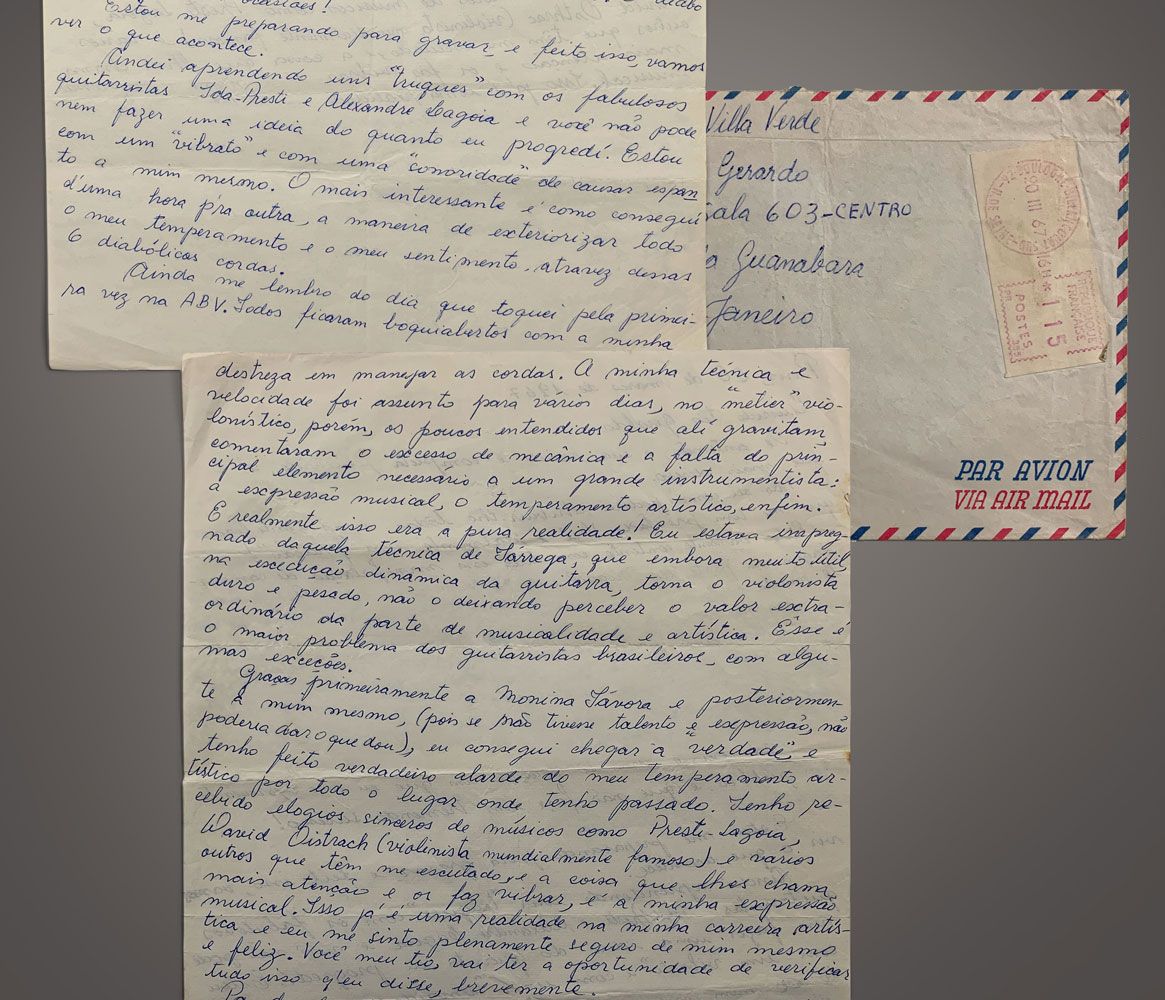 ocasiões!
Estou me preparando para gravar, e feito isso, vamos
ver o que acontece.
Andei aprendendo uns "truques" com os fabulosos
guitarristas Ida-Presti e Alexandre Lagoia e você não pode
nem fazer uma ideia do quanto eu progredí. Estou
com um "vibrato" e com uma "conoridade" de causar espan
to a mim mesmo. O mais interessante é como consegui
d'uma hora p'ra outra, a maneira de exteriorizar todo
o meu temperamento e o meu sentimento, atravez dessas
6 diabólicas cordas.
Ainda me lembro do dia que toquei pela primei-
ra vez na ABV. Todos ficaram boquiabertos com a minha
destreza em manejar as cordas. A minha técnica e
velocidade foi assunto para vários dias, no "métier" vio-
lonístico, porém, os poucos entendidos que alí gravitam,
comentaram o excesso de mecânica e a falta do prin-
cipal elemento necessário a um grande instrumentista:
a expressão musical, o temperamento artístico, enfim.
E realmente isso era a pura realidade! Eu estava impreg-
nado daquela técnica de Tárrega, que embora muito útil,
na execução dinâmica da guitarra, torna o violonista
duro e pesado, não o deixando perceber o valor extra-
ordinário da parte de musicalidade e artística. Êsse é
o maior problema dos guitarristas brasileiros, com algu-
mas exceções.
Graças primeiramente a Monina Távora e posteriormen
te a mim mesmo, (pois se não tivesse talento e expressão, não
poderia dar o que dou), eu consegui chegar à "verdade" e
tenho feito verdadeiro alarde do meu temperamento ar-
tístico por todo o lugar onde tenho passado. Tenho re-
cebido elogios sinceros de músicos como Presti-Lagoia,
David Oistrach (violinista mundialmente famoso) e vários
outros que têm me escutado, e a coisa que lhes chama
mais atenção e os faz vibrar, é a minha expressão
musical. Isso já é uma realidade na minha carreira artís-
tica e eu me sinto plenamente seguro de mim mesmo
e feliz. Você meu tio, vai ter a oportunidade de verificar
tudo isso q'eu disse, brevemente.
Villa Verde
Gerardo
Sala 603-CENTRO
Guanabara
Janeiro
III 67
115
POSTES
REPUBLIQUE
FRANÇAISE
POSTES
PAR AVION
VIA AIR MAIL